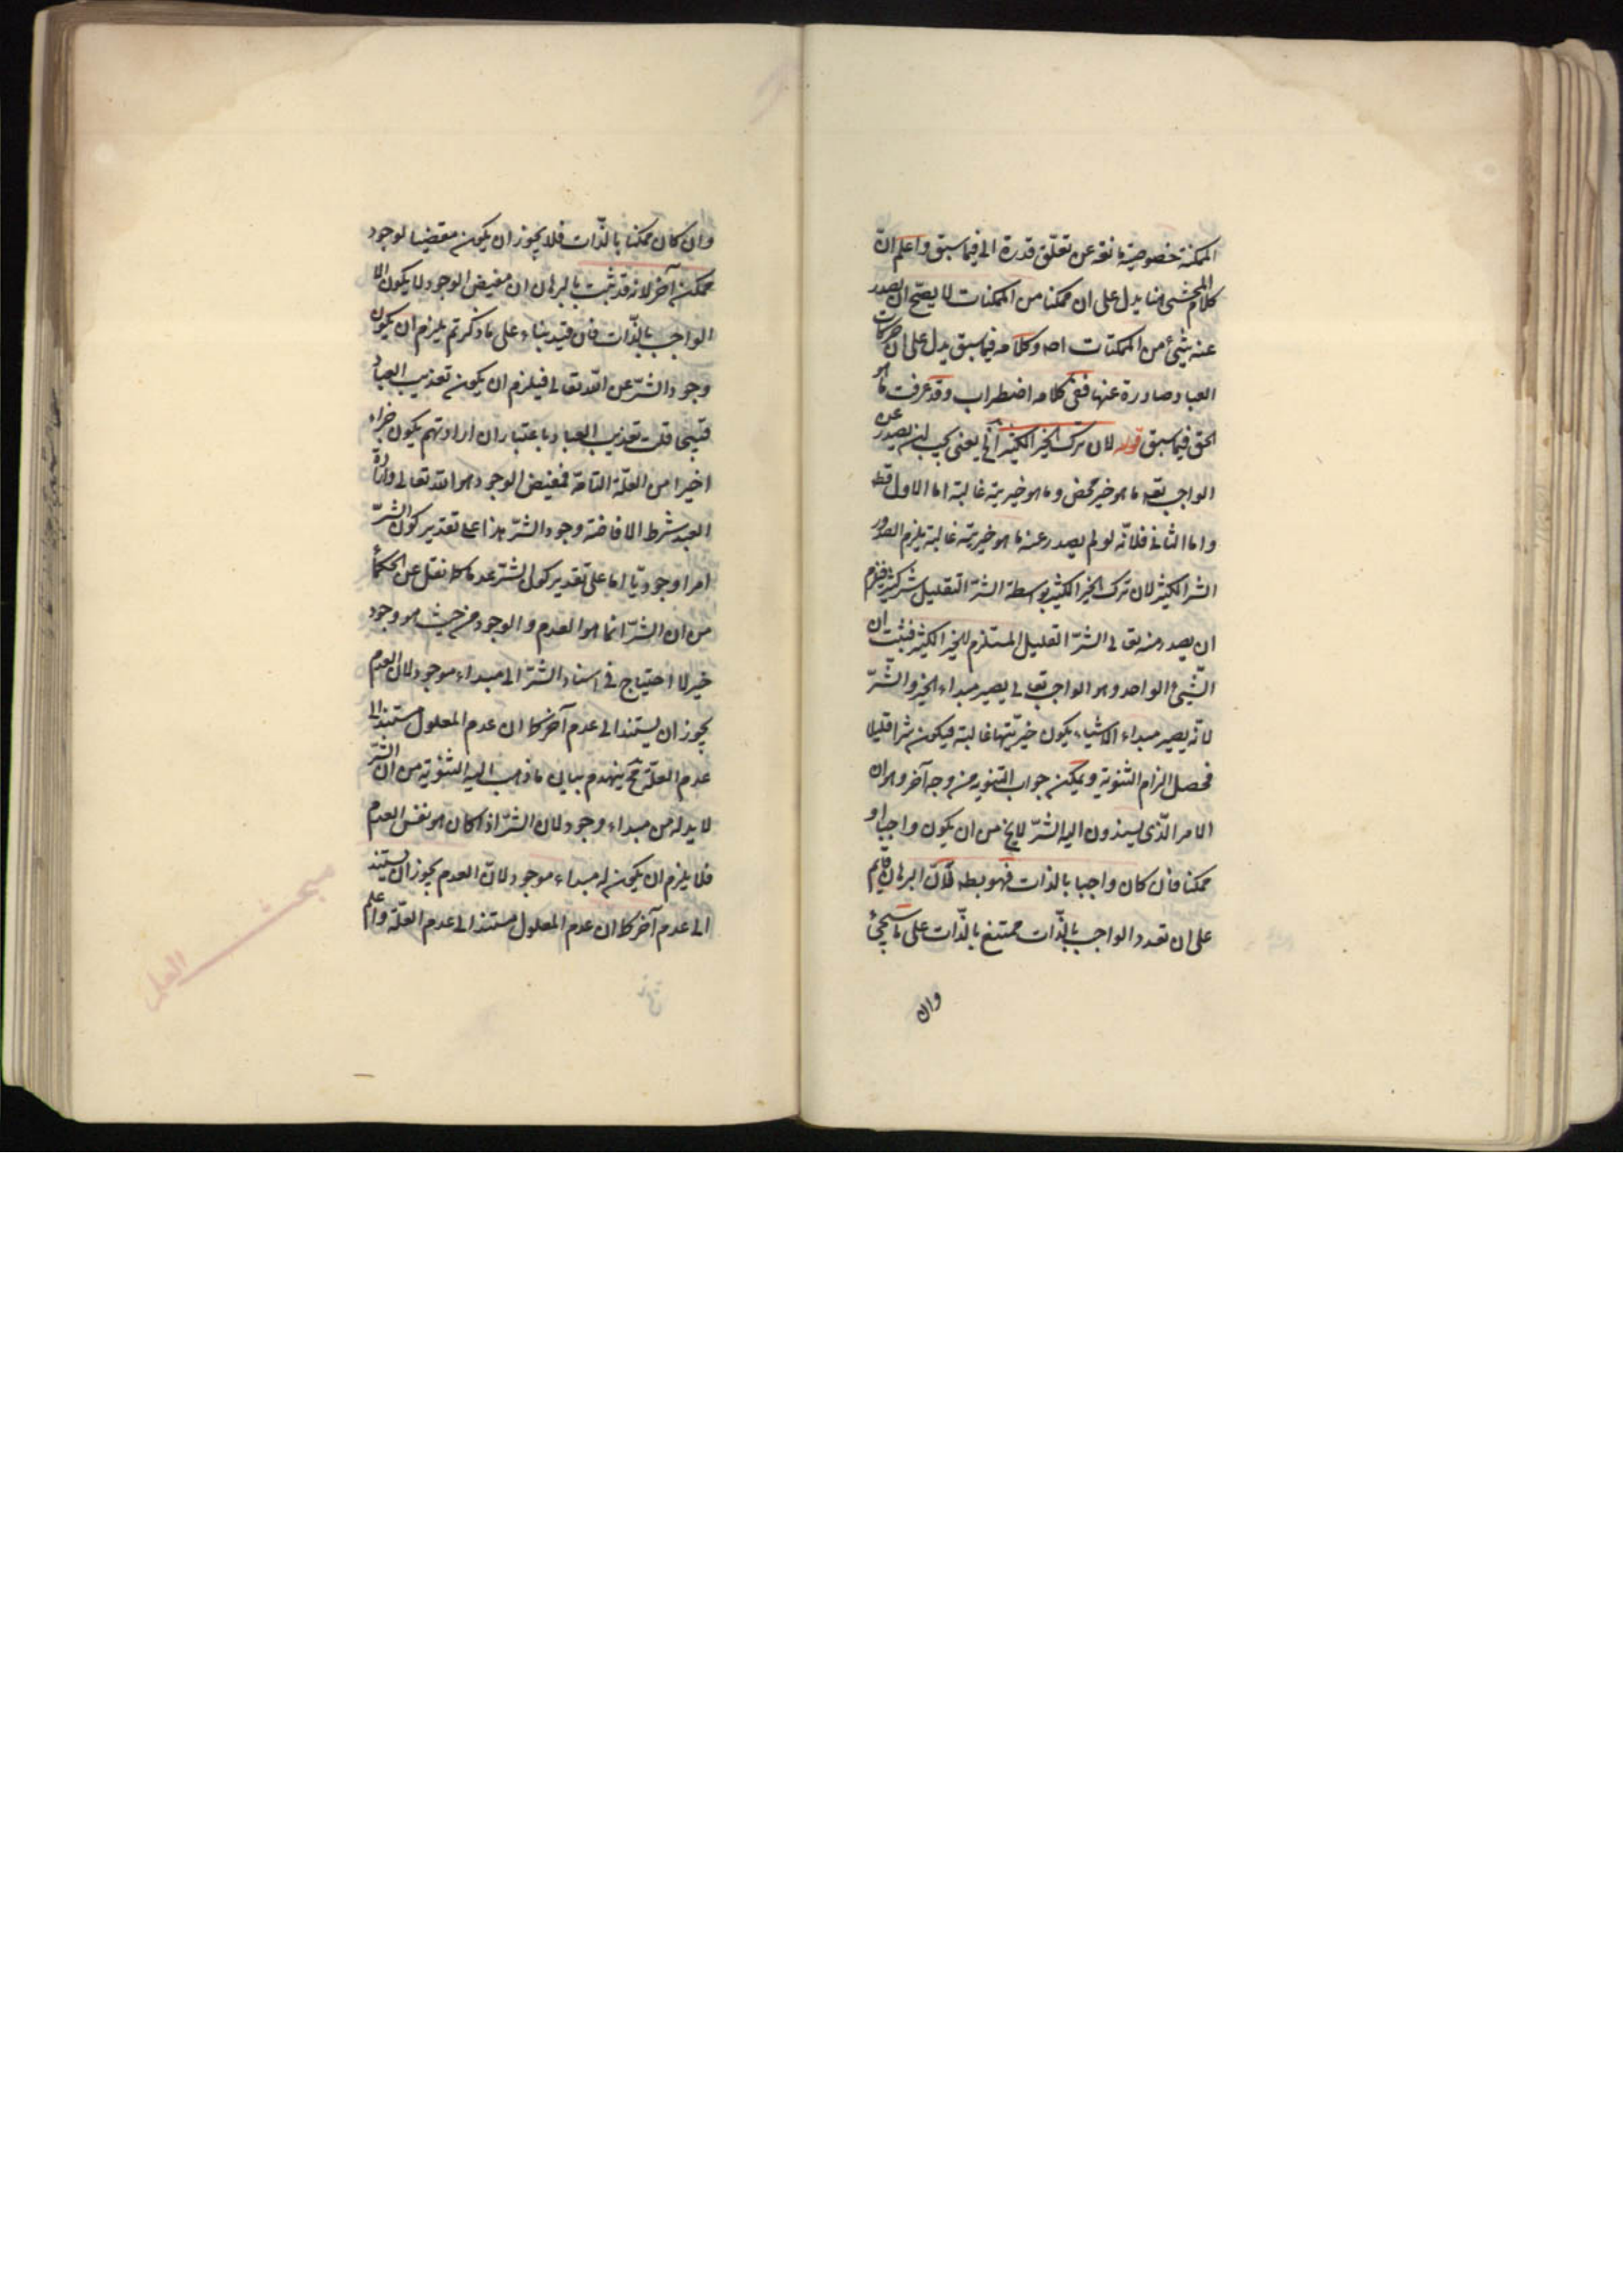 الممكنة خصوصية مانعة عن تعلّق قدرة الى فيما سبق واعلم انّ
كلام المحشى هنا يدل على ان ممكنا من الممكنات لا يصحّ ان يصدر
عنه شئ من الممكنات اصه وكلامه فيما سبق يدل على ان حركات
العباد صادرة عنها ففى كلامه اضطراب وقد عرفت ما هو
الحق فيما سبق قوله لان ترك الخير الكثير الخ يعنى يجب ان يصدر عن
الواجب تعه ما هو خير محض وما هو خيريته غالبته اما الاول فظ
واما الثانى فلانّه لو لم يصدر عنه ما هو خيريته غالبته يلزم الصدور
الشر الكثير لان ترك الخير الكثير بوسطة الشرّ القليل شر كثير فيلزم
ان يصدر منه تعالى الشرّ القليل المستلزم للخير الكثير فثبت ان
الشّئ الواحد وهو الواجب تعالى يصير مبداء الخير والشرّ
لانّه يصير مبداء الاشياء يكون خيريّتها غالبته فيكون شرا قليلا
فحصل الزام الثنوية ويمكن جواب الثنويه من وجه آخر وهو ان
الامر الّذى يسندون اليه الشرّ لا يخ من ان يكون واجبا او
ممكنا فان كان واجبا بالذات فهو بطه لانّ البرهان قايم
على ان تعدد الواجب بالذّات ممتنع بالذّات على ما سيجئ
وان
وان كان ممكنا بالذّات فلا يجوز ان يكون مفيضا لوجود
ممكن آخر لانه قد ثبت بالبرهان ان مفيض الوجود لا يكون الا
الواجب بالذّات فان قيد بناء على ما ذكرتم يلزم ان يكون
وجود الشرّ عن الله تعالى فيلزم ان يكون تعذيب العباد
قبيحا قلت تعذيب العباد باعتبار ان ارادتهم يكون جزاء
اخيرا من العلّة التامّة فمفيض الوجود هو الله تعالى وارادة
العبد شرط الافاضة وجود الشرّ هذا على تقدير كون الشرّ
امرا وجوديّا اما على تقدير كون الشر عدما كما نقل عن الحكماء
من ان الشرّ انما هو العدم والوجود من حيث هو وجود
خير لا احتياج فى اسناد الشرّ الى مبداء موجود لان العدم
يجوز ان يستند الى عدم آخر كما ان عدم المعلول مستند الى
عدم العلّة فح ينهدم بنيان ما ذهب اليه الثنوية من ان الشرّ
لا بد له من مبداء وجود لان الشرّ اذا كان هو نفس العدم
فلا يلزم ان يكون له مبداء موجود لانّ العدم يجوز ان يستند
الى عدم آخر كما ان عدم المعلول مستند الى عدم العلّة واعلم
مبحث العلم